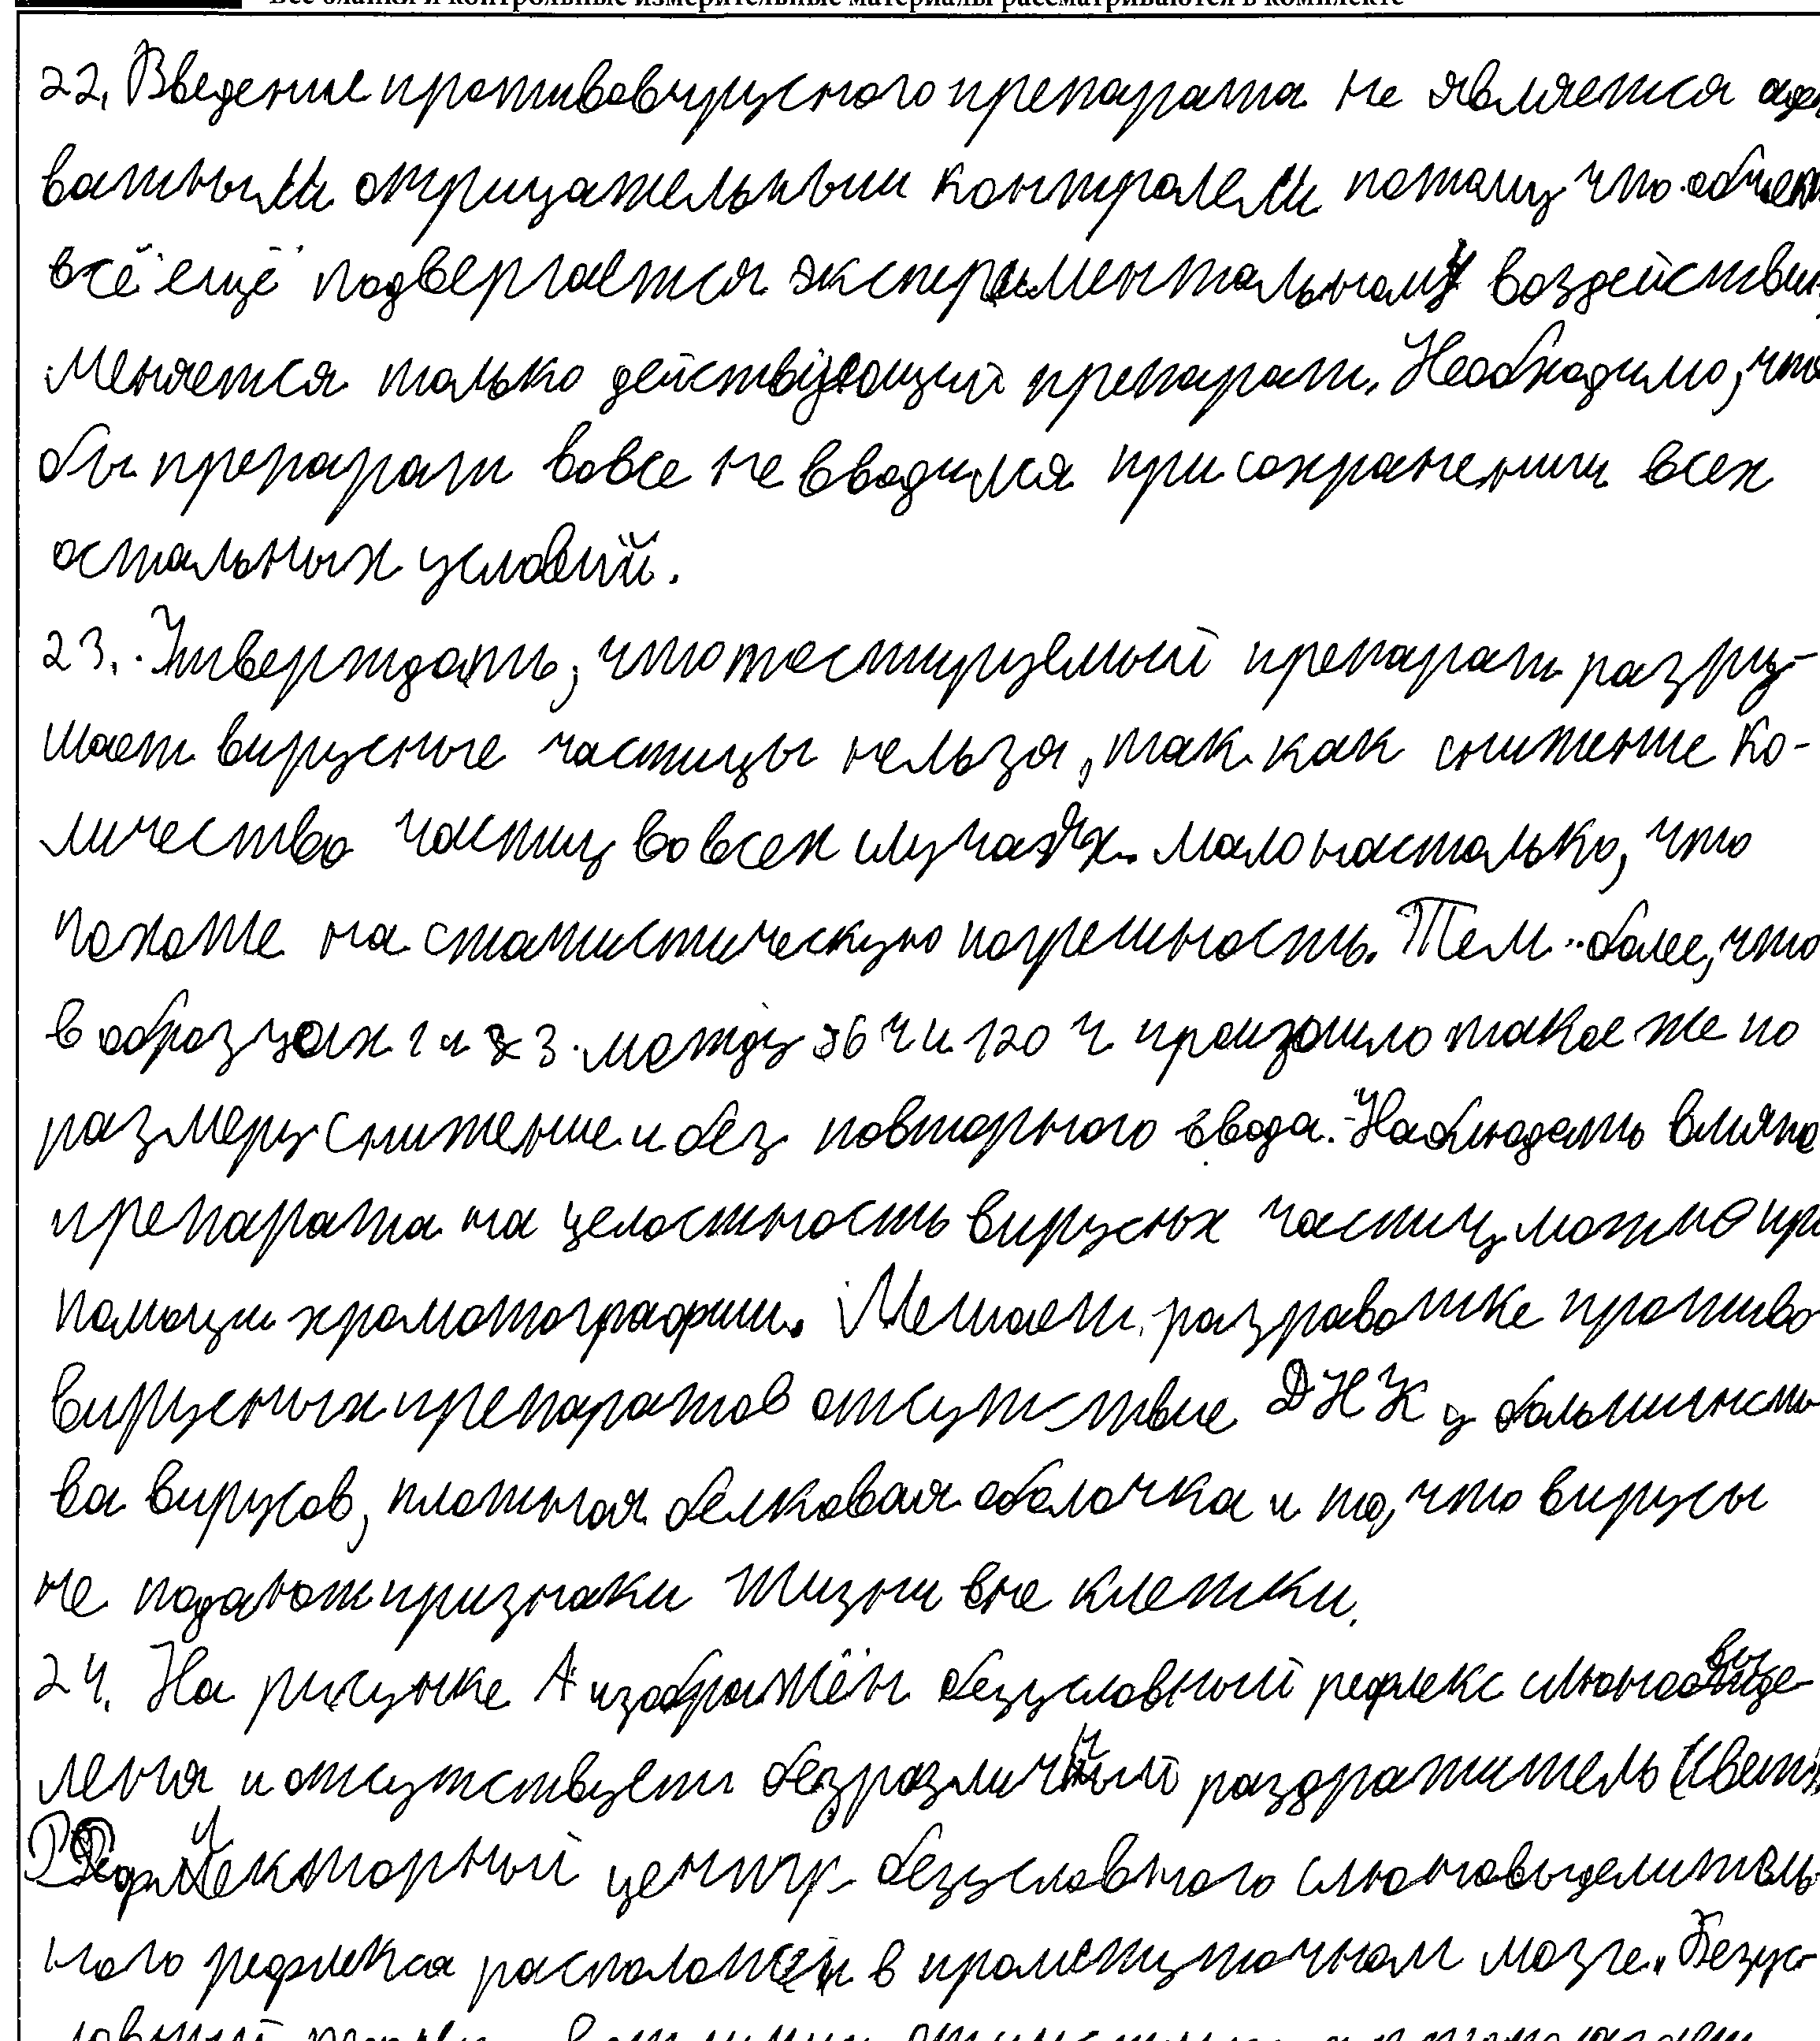 Все бланки и контрольные измерительные материалы рассматриваются в комплекте
22. Введение противовирусного препарата не является аде
ватным отрицательным контролем потому что объект
всё ещё подвергается экспериментальному воздействию,
меняется только действующий препарат. Необходимо, что
бы препарат вовсе не вводился при сохранении всех
остальных условий.
23. Утверждать, что тестируемый препарат разру-
шает вирусные частицы нельзя, так как снижение ко-
личества частиц во всех случаях мало настолько, что
похоже на статистическую погрешность. Тем более, что
в образцах 1 и 3 между 96 ч и 120 ч произошло такое же по
размеру снижение и без повторного ввода. Наблюдать влияние
препарата на целостность вирусных частиц можно при
помощи хромотографии. Мешает разработке противо
вирусных препаратов отсутствие ДНК у большинст
ва вирусов, плотная белковая оболочка и то, что вирусы
не подают признаки жизни вне клетки.
24. На рисунке А изображён безусловный рефлекс слюновыде-
ления и отсутствует безразличный раздражитель (свет).
Рефлекторный центр безусловного слюновыделитель
ного рефлекса расположен в промежуточном мозге. Безус-